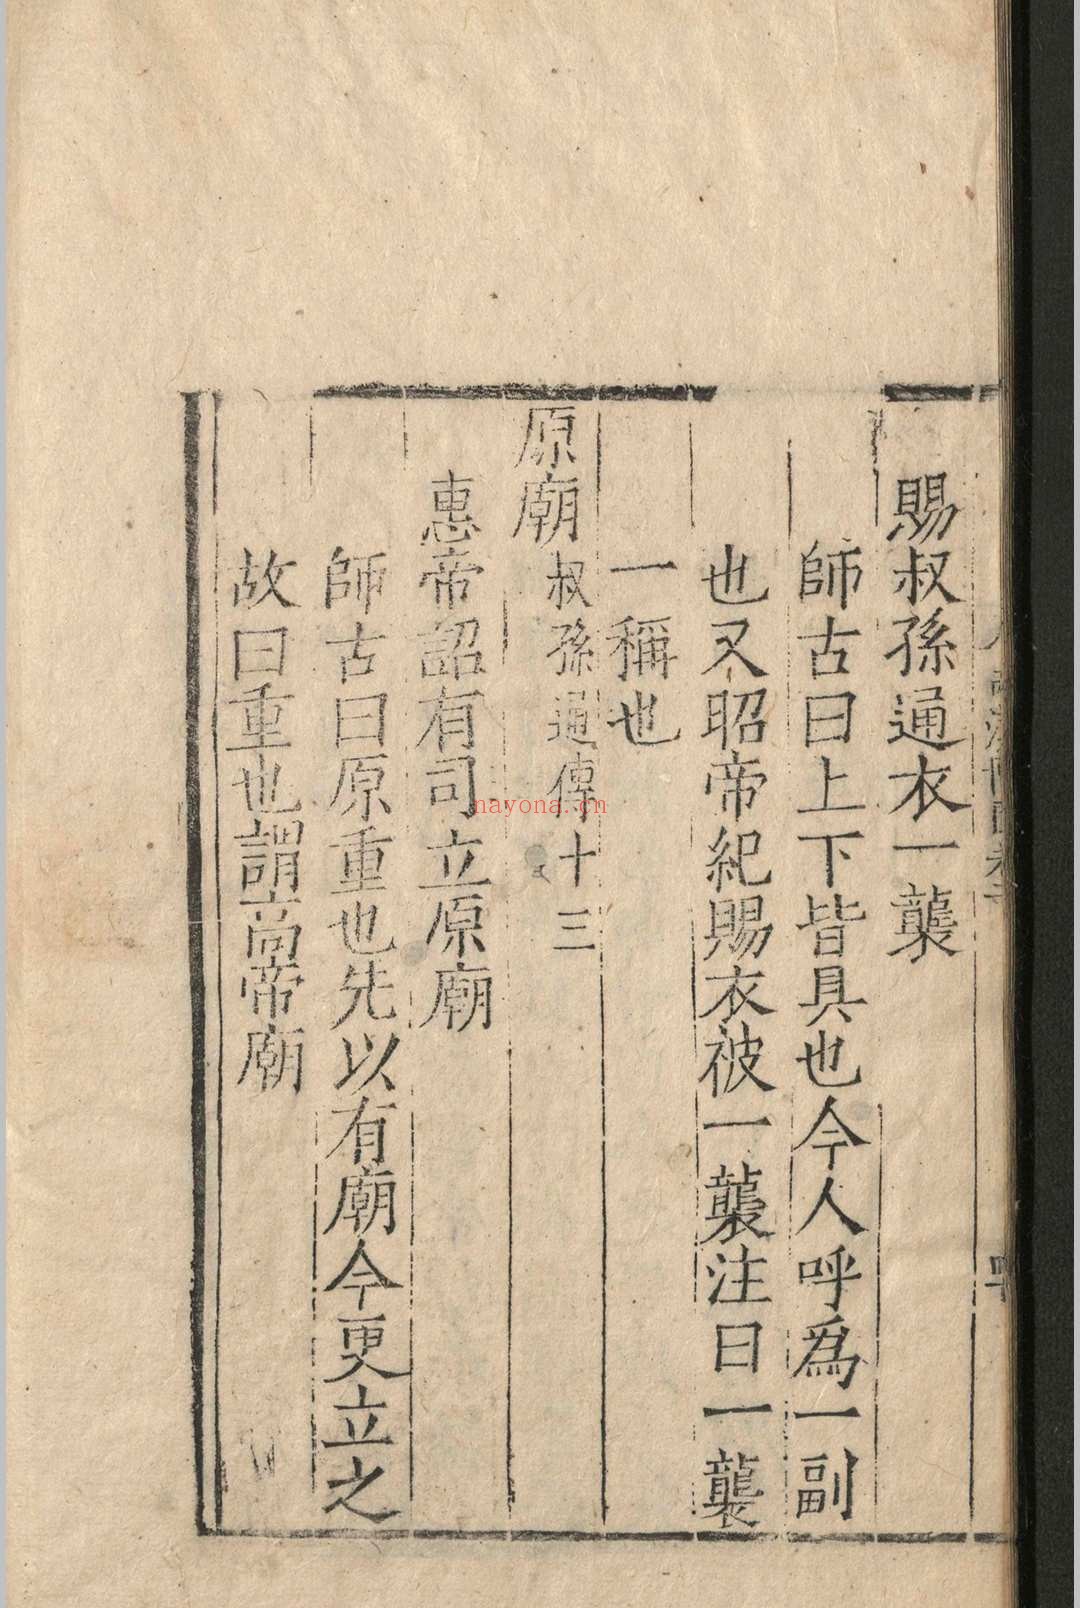 賜叔孫通衣一襲
師古曰上下皆具也今人呼爲一副
也又昭帝紀賜衣被一襲注曰一襲
一稱也
原廟叔孫通傳十三
惠帝詔有司立原廟
師古曰原重也先以有廟今更立之
故曰重也謂高帝廟
nayona.cn